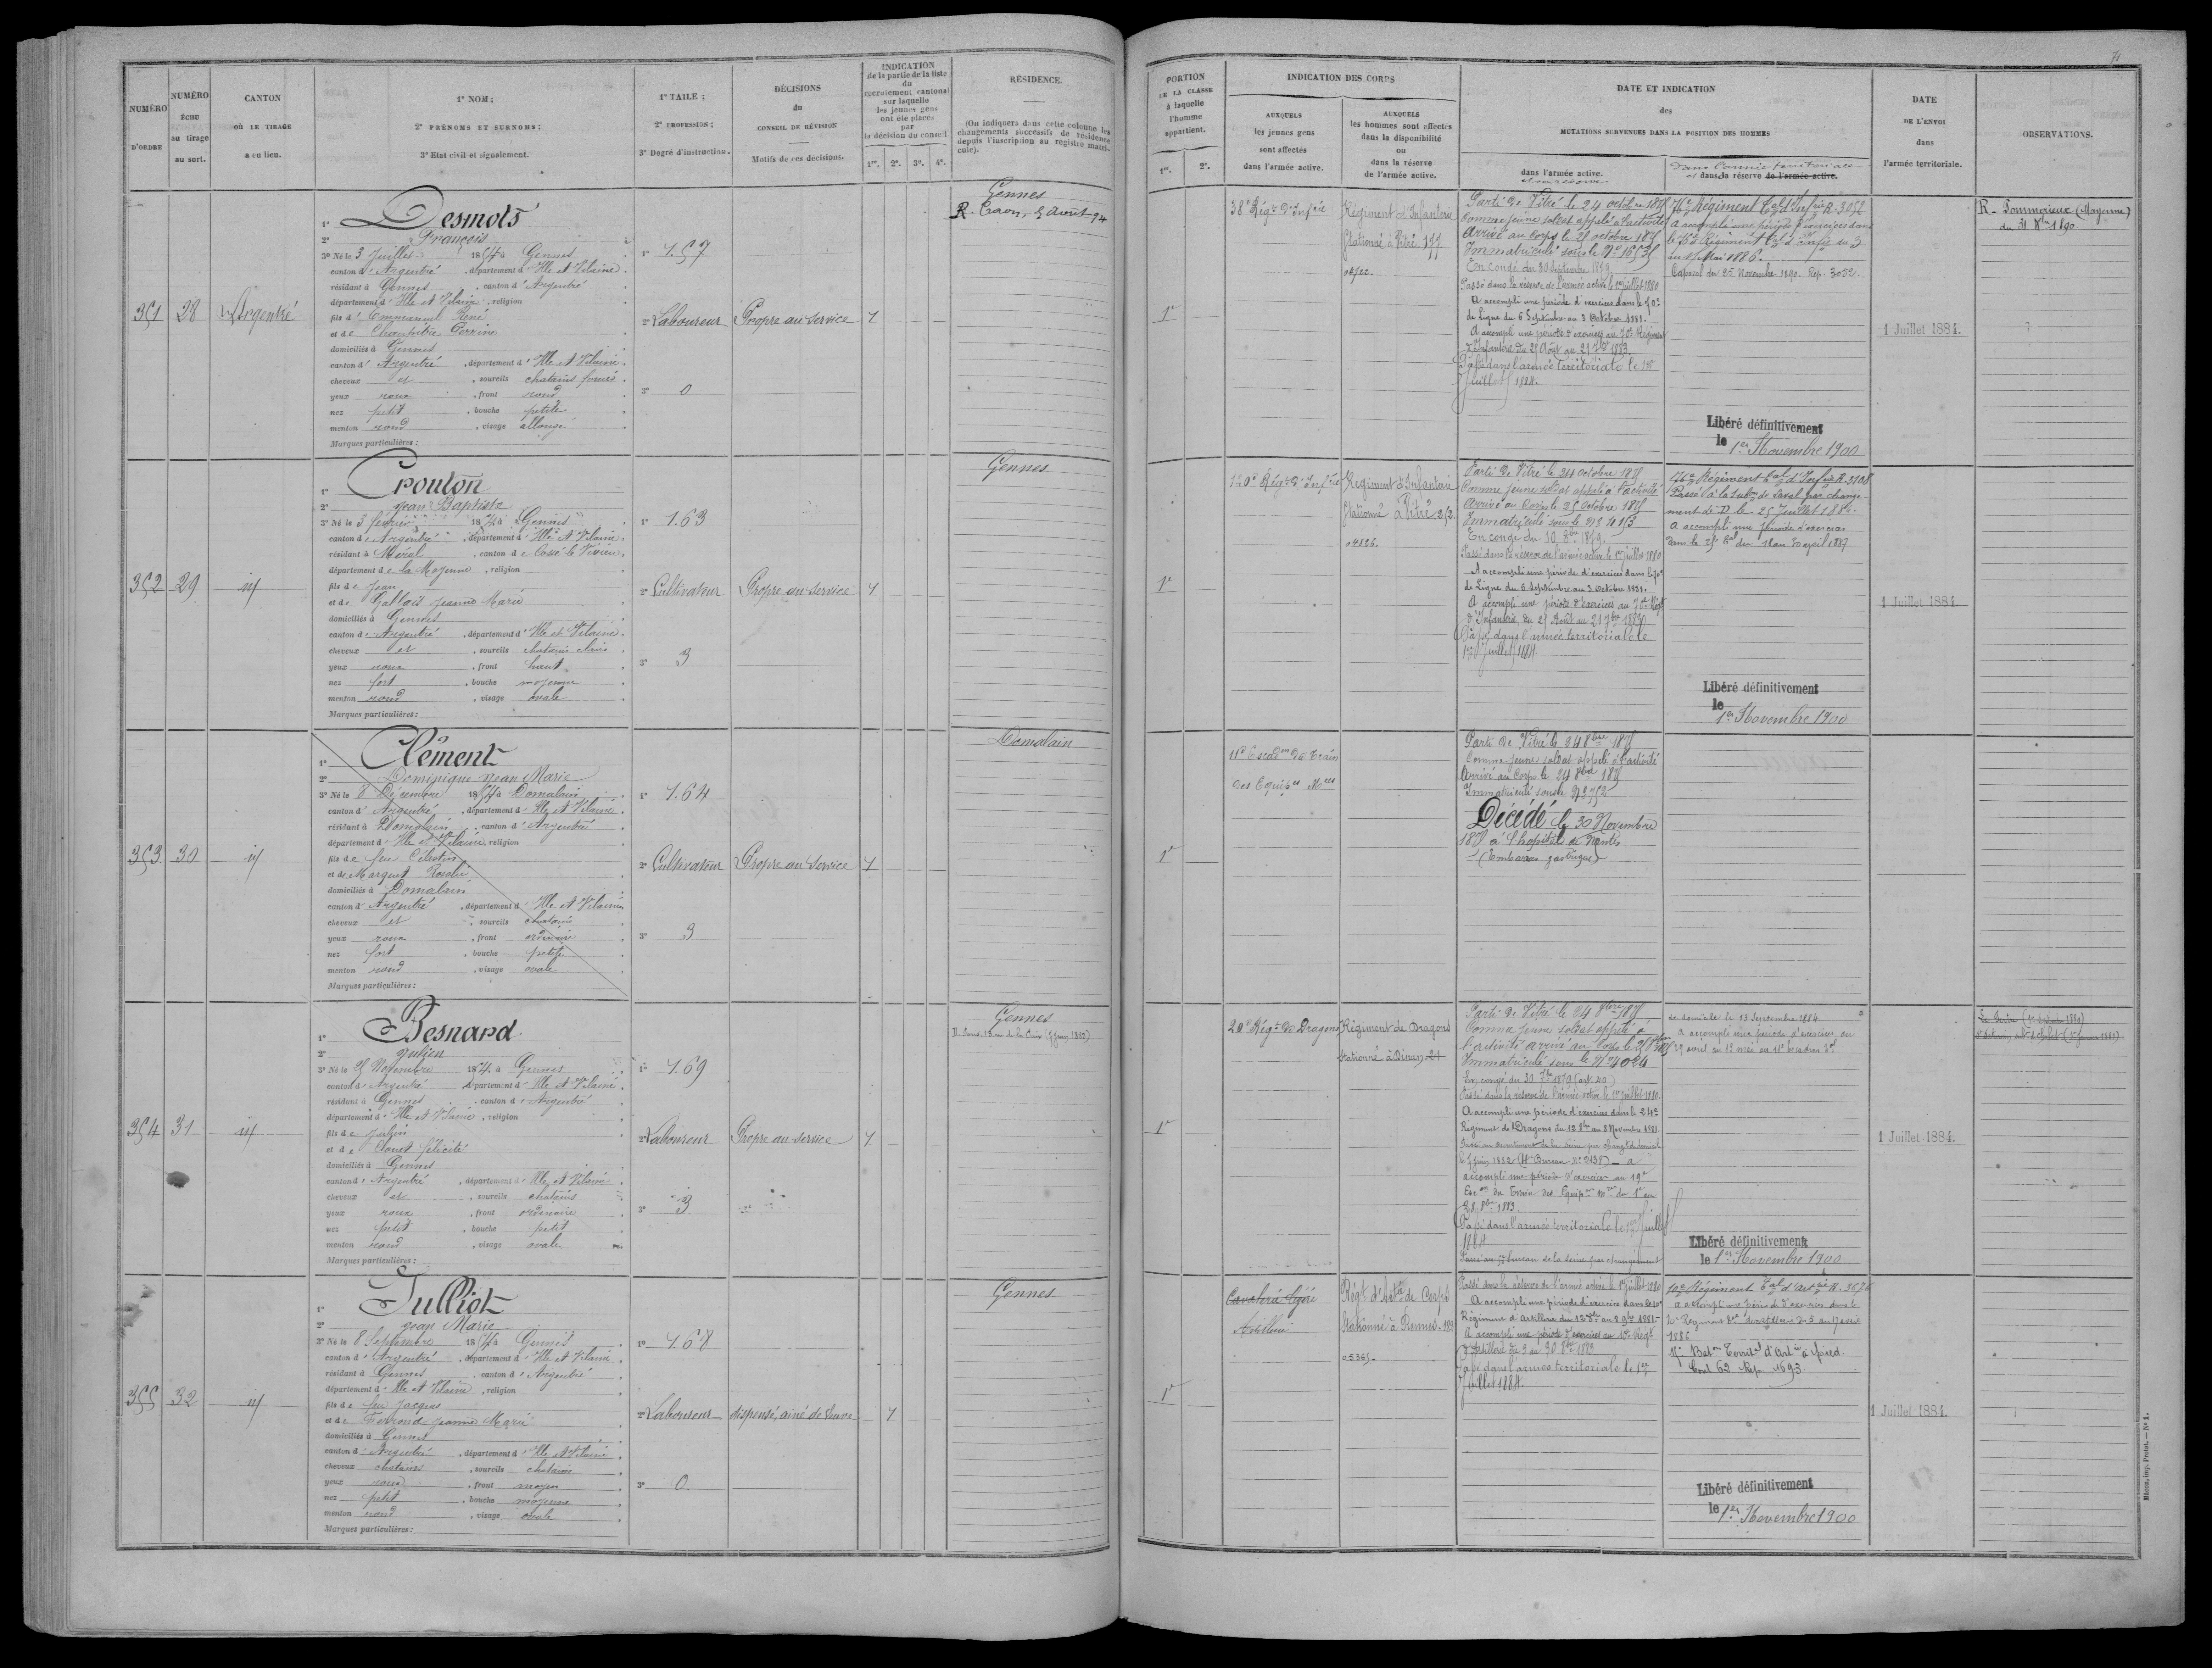 NUMÉRO D'ORDRE
NUMÉRO ÉCHU au tirage au sort.
CANTON OÙ LE TIRAGE a eu lieu.
1° NOM;
2° PRÉNOMS ET SURNOMS;
3° Etat civil et signalement.
1° TAILLE;
2° PROFESSION;
3° Degré d'instruction.
DÉCISIONS du CONSEIL DE RÉVISION
Motifs de ces décisions.
INDICATION de la partie de la liste du recrutement cantonal sur laquelle les jeunes gens ont été placés par la décision du conseil
1re. 2e. 3e. 4e.
RÉSIDENCE.
(On indiquera dans cette colonne les changements successifs de résidence depuis l'inscription au registre matricule).
PORTION DE LA CLASSE à laquelle l'homme appartient.
1re. 2e.
INDICATION DES CORPS
AUXQUELS les jeunes gens sont affectés dans l'armée active.
AUXQUELS les hommes sont affectés dans la disponibilité ou dans la réserve de l'armée active.
DATE ET INDICATION des MUTATIONS SURVENUES DANS LA POSITION DES HOMMES
dans l'armée active.
et en réserve
Dans l'armée territoriale
et dans la réserve de l'armée active.
DATE DE L'ENVOI dans l'armée territoriale.
OBSERVATIONS.
71
351 28 Argentré
1° Desmots
2° François
3° Né le 3 Juillet 1854 à Gennes
canton d'Argentré, département d'Ille et Vilaine
résidant à Gennes, canton d'Argentré
département d'Ille et Vilaine, religion
fils d'Emmanuel René
et de Champitre Perrine
domiciliés à Gennes
canton d'Argentré, département d'Ille et Vilaine
cheveux et, sourcils chatains foncés
yeux roux, front rond
nez petit, bouche petite
menton rond, visage allongé
Marques particulières:
1° 1.57
2° Laboureur
3° 0
Propre au service 1
Gennes
R. Craon, 5 Août 94
1re
38e Régt d'Infrie
Régiment d'Infanterie
Stationné à Vitré 177
Parti de Vitré le 24 octobre 1875
Comme jeune soldat appelé à l'activité
Arrivé au Corps le 25 octobre 1875
Immatriculé sous le No
En congé du 30 Septembre 1879
Passé dans la réserve de l'armée active le 1er juillet 1880
A accompli une période d'exercices dans le 70e
de Ligne du 6 Septembre au 3 Octobre 1881.
A accompli une période d'exercices au 70e Régiment
d'Infanterie du 25 Août au 21 7bre 1883.
Passé dans l'armée territoriale le 1er
Juillet 1884.
76e Régiment Tal d'Infrie R. 3052
A accompli une période d'exercices dans
Mai 1886.
Caporal du 25 Novembre 1890. Rép. 3052
Libéré définitivement
le 1er Novembre 1900
1 Juillet 1884.
R. Pommerieux (Mayenne)
du 31 Xbre 1890
352 29 id
1° Crouton
2° Jean Baptiste
3° Né le 3 février 1854 à Gennes
canton d'Argentré, département d'Ille et Vilaine
résidant à Méral, canton de Cossé le Vivien
département de la Mayenne, religion
fils de Jean
et de Gallois Jeanne Marie
domiciliés à Gennes
canton d'Argentré, département d'Ille et Vilaine
cheveux et, sourcils chatains clairs
yeux roux, front haut
nez fort, bouche moyenne
menton rond, visage ovale
Marques particulières:
1° 1.63
2° Cultivateur
3° 3
Propre au service 1
Gennes
1re
120e Régt d'Infrie
Régiment d'Infanterie
Stationné à Vitré 252
04826.
Parti de Vitré le 24 octobre 1875
Comme jeune soldat appelé à l'activité
Arrivé au Corps le 25 octobre 1875
Immatriculé sous le No 4153
En congé du 30 7bre 1879.
Passé dans la réserve de l'armée active le 1er juillet 1880
A accompli une période d'exercices dans le 70e
de Ligne du 6 Septembre au 3 Octobre 1881.
A accompli une période d'exercices au 70e Régt
d'Infanterie du 25 Août au 21 7bre 1883
Passé dans l'armée territoriale le
1er Juillet 1884
76e Régiment Tal d'Infrie R. 3108
Passé à la Subon de Laval par change-
ment de D. le 25 Juillet 1884.
A accompli une période d'exercices
dans le 25e Tal du 18 au 30 avril 1887
Libéré définitivement
le 1er Novembre 1900
1 Juillet 1884.
353 30 id
1° Clément
2° Dominique Jean Marie
3° Né le 8 Décembre 1854 à Domalain
canton d'Argentré, département d'Ille et Vilaine
résidant à Domalain, canton d'Argentré
département d'Ille et Vilaine, religion
fils de feu Célestin
et de Margeut Rosalie
domiciliés à Domalain
canton d'Argentré, département d'Ille et Vilaine
cheveux et, sourcils chatains
yeux roux, front ordinaire
nez fort, bouche petite
menton rond, visage ovale
Marques particulières:
1° 1.64
2° Cultivateur
3° 3
Propre au service 1
Domalain
1re
11e Escadon du Train
des Equipes Mres
Parti de Vitré le 24 8bre 1875
Comme jeune soldat appelé à l'activité
Arrivé au Corps le 24 8bre 1875
Immatriculé sous le No 752
Décédé le 30 Novembre
1875 à l'hopital de Nantes
(Embarras gastrique)
354 31 id
1° Besnard
2° Julien
3° Né le 25 Novembre 1854 à Gennes
canton d'Argentré, département d'Ille et Vilaine
résidant à Gennes, canton d'Argentré
département d'Ille et Vilaine, religion
fils de Julien
et de Clouet Félicité
domiciliés à Gennes
canton d'Argentré, département d'Ille et Vilaine
cheveux et, sourcils chatains
yeux roux, front ordinaire
nez petit, bouche petit
menton rond, visage ovale
Marques particulières:
1° 1.69
2° Laboureur
3° 3
Propre au service 1
Gennes
1re
20e Régt de Dragons
Régiment de Dragons
stationné à Dinan 21
Parti de Vitré le 24 8bre 1875
Comme jeune soldat appelé à
l'activité arrivé au Corps le 25 8bre 1875
Immatriculé sous le No 4024
En congé du 30 7bre 1879 (art. 40)
Passé dans la réserve de l'armée active le 1er juillet 1880.
A accompli une période d'exercices dans le 24e
Régiment de Dragons du 12 8bre au 8 Novembre 1881.
accompli une période d'exercices au 19e
Escon du Train des Equipes Mres du 1er au
28 8bre 1883
Passé dans l'armée territoriale le 1er Juillet
1884
Passé au bureau de la Seine par changement
de domicile le 13 Septembre 1884.
A accompli une période d'exercices du
29 avril au 12 mai au 11e Escadron Tal
Libéré définitivement
le 1er Novembre 1900
1 Juillet 1884.
355 32 id
1° Julliot
2° Jean Marie
3° Né le 8 Septembre 1854 à Gennes
canton d'Argentré, département d'Ille et Vilaine
résidant à Gennes, canton d'Argentré
département d'Ille et Vilaine, religion
fils de feu Jacques
et de Ferrond Jeanne Marie
domiciliés à Gennes
canton d'Argentré, département d'Ille et Vilaine
cheveux chatains, sourcils chatains
yeux roux, front moyen
nez petit, bouche moyenne
menton rond, visage ovale
Marques particulières:
1° 1.68
2° Laboureur
3° 0
dispensé, ainé de veuve 1
Gennes
1re
Cavalerie légère
Artillerie
Régt d'Artie de Corps
Stationné à Rennes
05365.
Passé dans la réserve de l'armée active le 1er juillet 1880
A accompli une période d'exercice dans le 10e
Régiment d'Artillerie du 12 8bre au 8 9bre 1881
A accompli une période d'exercices au 10e Régt
d'Artillerie du 3 au 30 8bre 1883
Passé dans l'armée territoriale le 1er
Juillet 1884.
10e Régiment Tal d'Artrie R. 3676
a accompli une période d'exercices dans le
1886
Baton Territal d'Artie à pied.
Cont 62 Rép. 1693
Libéré définitivement
le 1er Novembre 1900
1 Juillet 1884.
Mâcon, imp. Protat. — N° 1.